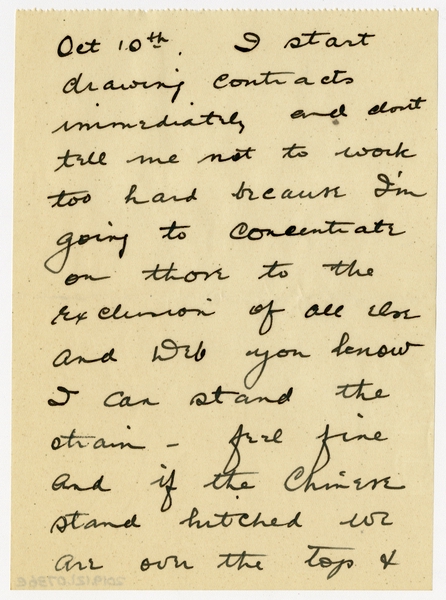 Oct 10th. I start
drawing contracts
immediately and don't
tell me not to work
too hard because I'm
going to concentrate
on those to the
exclusion of all else
and Deb you know
I can stand the
strain - feel fine
and if the Chinese
stand hitched we
are over the top &